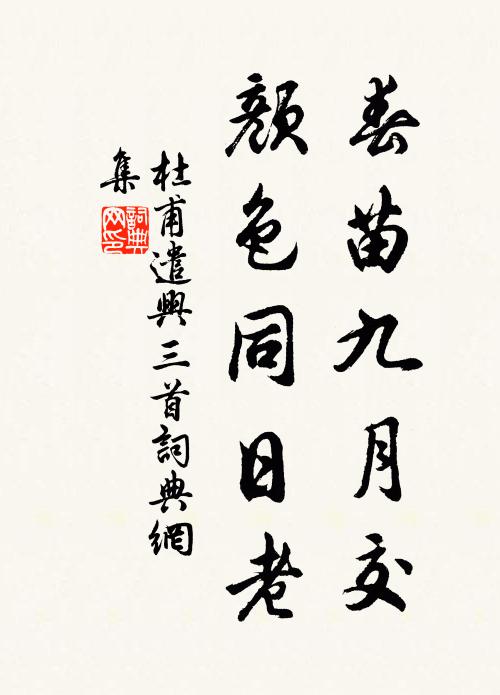 春苗九月交
顏色同日老
杜甫遣興三首詞典網
集
詞典
网印